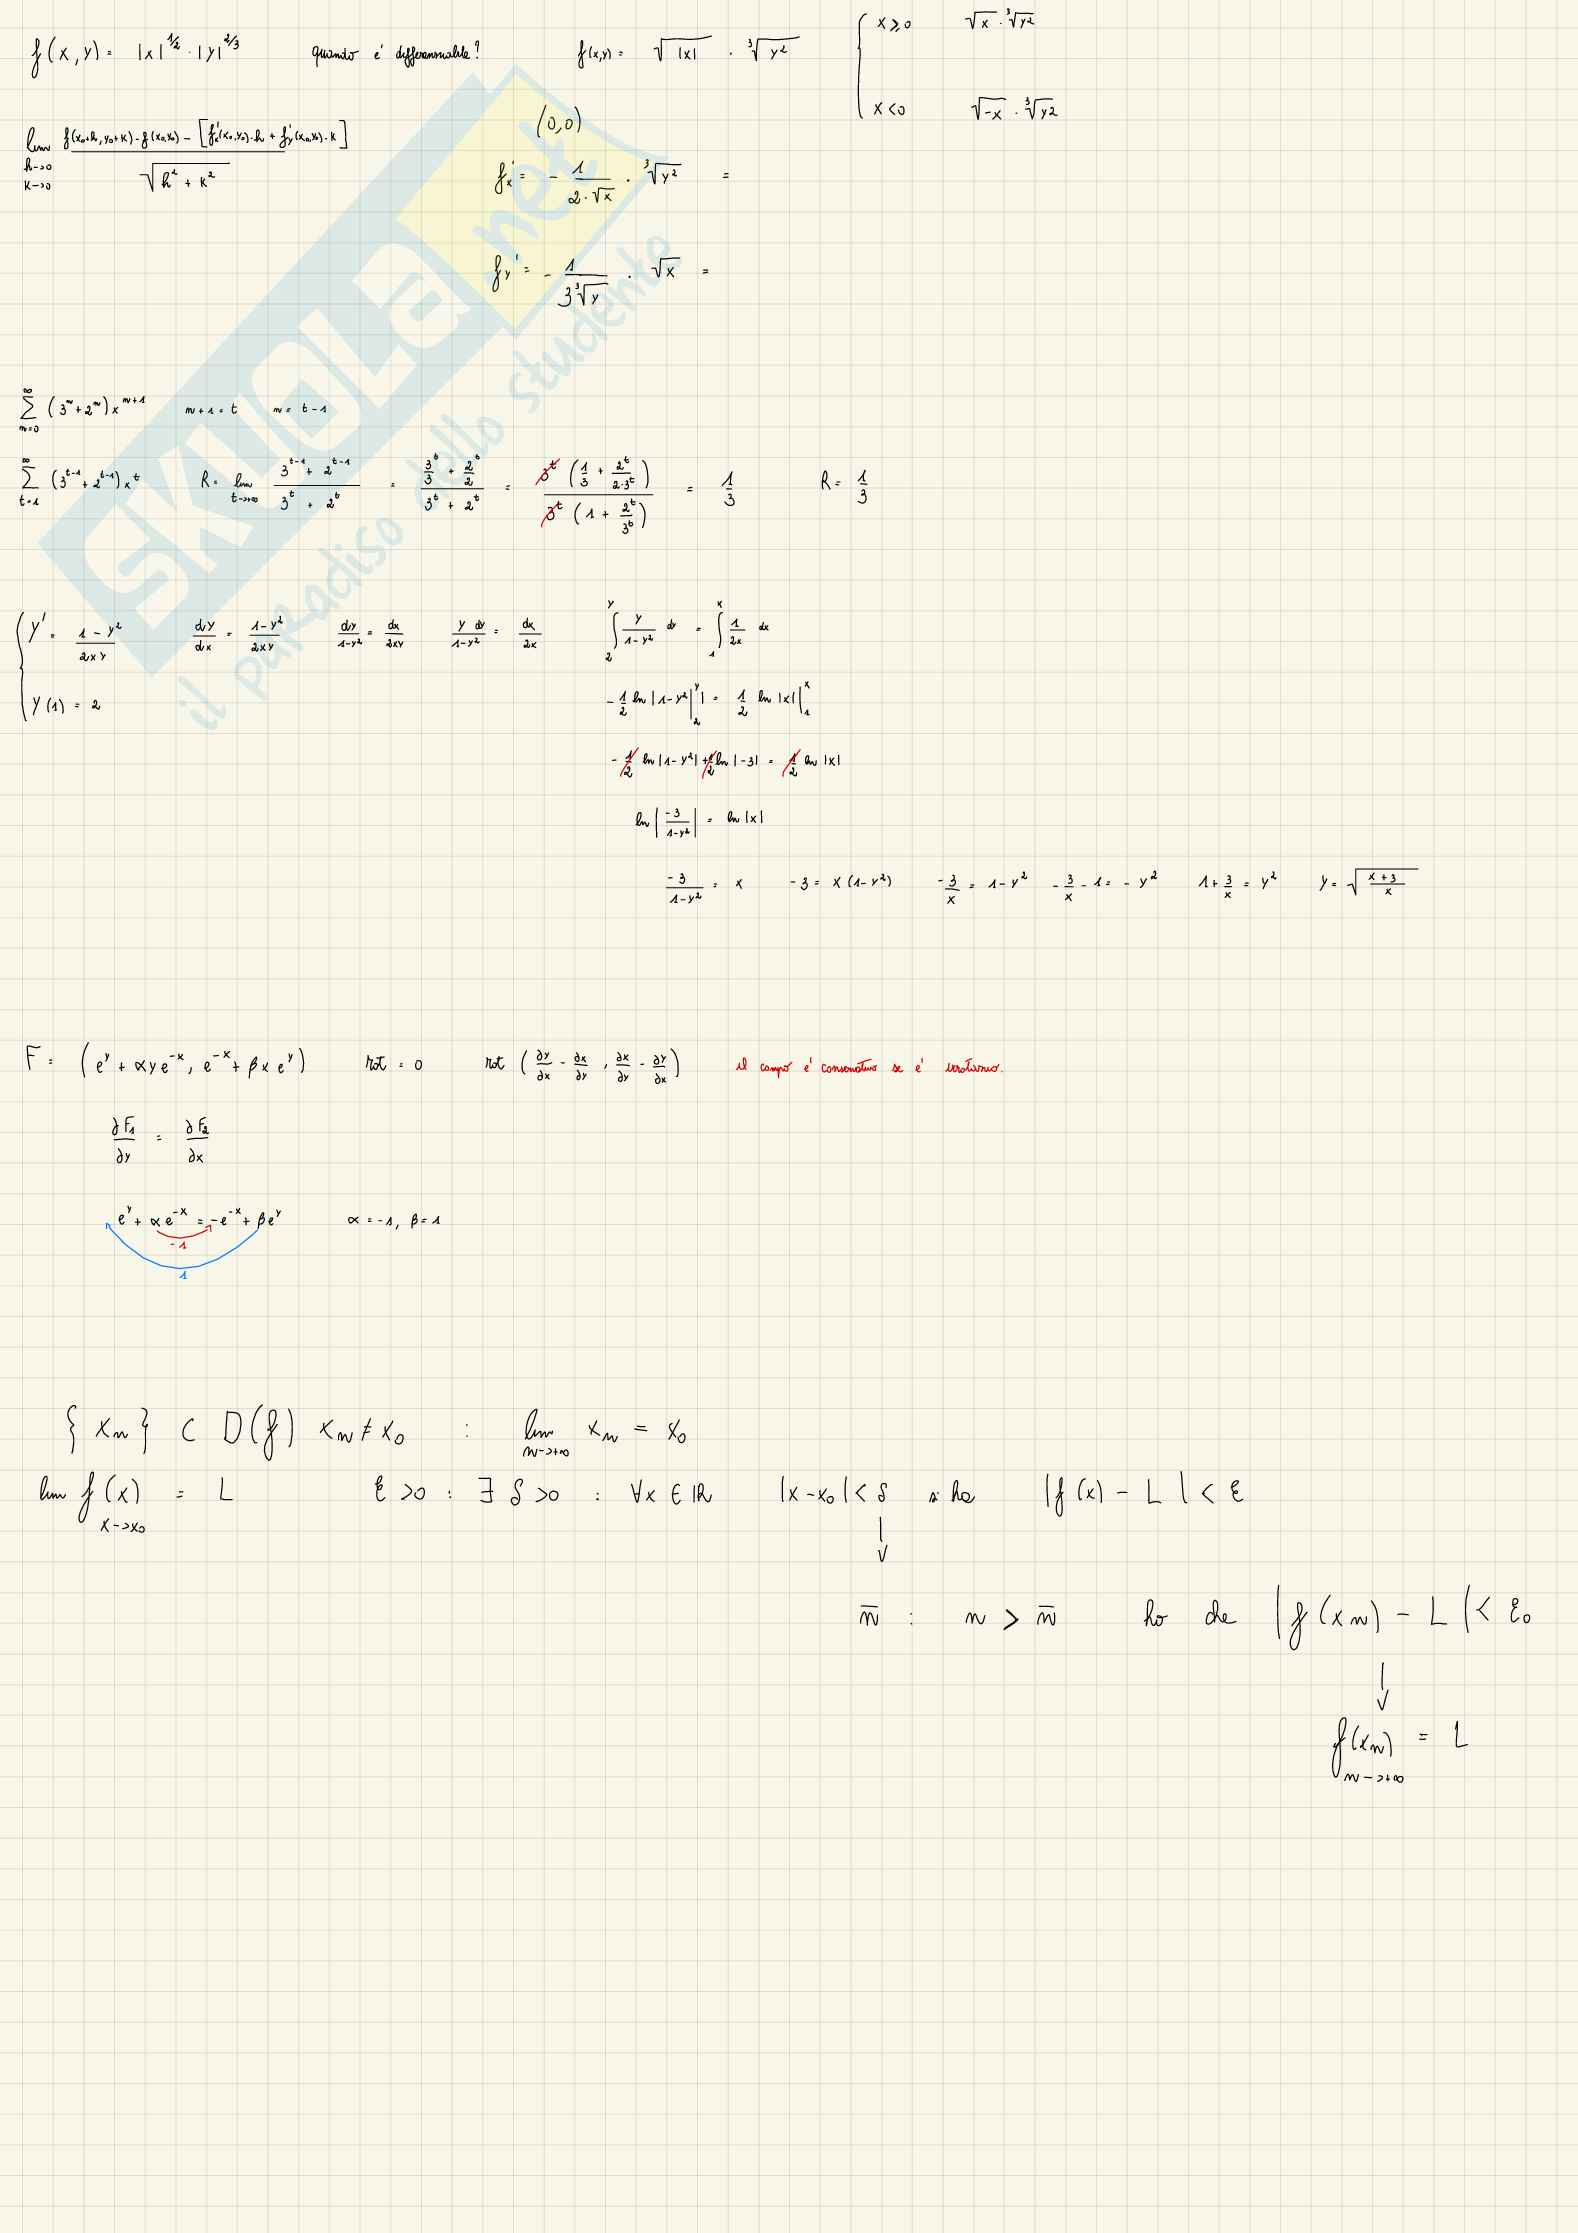 f(x,y) = |x|^{1/2} · |y|^{2/3} quando é differenziabile? f(x,y) = √|x| · ∛y² { x ≥ 0 √x · ∛y²
x < 0 √-x · ∛y²
lim h→0 k→0 f(x₀+h, y₀+k) - f(x₀,y₀) - [f'x(x₀,y₀)·h + f'y(x₀,y₀)·k] / √(h² + k²)
(0,0)
f'x = - 1/(2·√x) · ∛y² =
fy' = - 1/(3∛y) · √x =
∑_{n=0}^{∞} (3ⁿ + 2ⁿ) x^{n+1} n+1 = t n = t-1
∑_{t=1}^{∞} (3^{t-1} + 2^{t-1}) x^t R = lim t→+∞ (3^{t-1} + 2^{t-1}) / (3^t + 2^t) = (3^t/3 + 2^t/2) / (3^t + 2^t) = 3^t (1/3 + 2^t/(2·3^t)) / 3^t (1 + 2^t/3^t) = 1/3 R = 1/3
{ y' = (1-y²)/(2xy) dy/dx = (1-y²)/(2xy) dy/(1-y²) = dx/(2xy) y dy/(1-y²) = dx/(2x) ∫_2^y y/(1-y²) dy = ∫_1^x 1/(2x) dx
y(1) = 2 -1/2 ln|1-y²| |_2^y = 1/2 ln|x| |_1^x
-1/2 ln|1-y²| + 1/2 ln|-3| = 1/2 ln|x|
ln|-3/(1-y²)| = ln|x|
-3/(1-y²) = x -3 = x(1-y²) -3/x = 1-y² -3/x - 1 = -y² 1 + 3/x = y² y = √((x+3)/x)
F = (e^y + αye^{-x}, e^{-x} + βxe^y) rot = 0 rot (∂y/∂x - ∂x/∂y, ∂x/∂y - ∂y/∂x) il campo é conservativo se é irrotazionale.
∂F₁/∂y = ∂F₂/∂x
e^y + αe^{-x} = -e^{-x} + βe^y α = -1, β = 1
-1
1
{xₙ} ⊂ D(f) xₙ ≠ x₀ : lim n→+∞ xₙ = x₀
lim f(x) = L x→x₀ ε > 0 : ∃ δ > 0 : ∀x ∈ ℝ |x-x₀| < δ si ha |f(x) - L| < ε
↓
n̄ : n > n̄ ho che |f(xₙ) - L| < ε₀
↓
f(xₙ) = L
n→+∞
SKUOLA.net
il paradiso dello studente